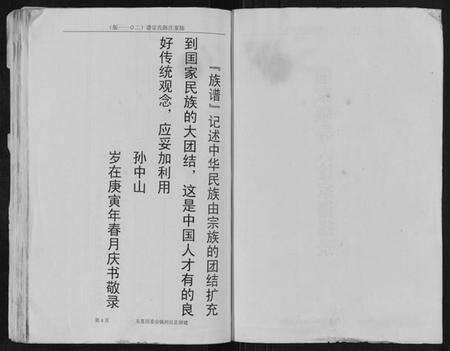 『族谱』记述中华民族由宗族的团结扩充
到国家民族的大团结，这是中国人才有的良
好传统观念，应妥加利用
孙中山
岁在庚寅年春月庆书敬录